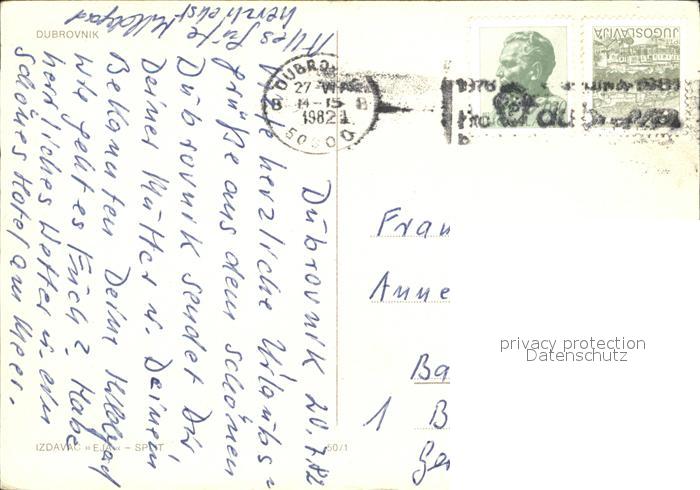 DUBROVNIK
Dubrovnik 20.7.82
Viele herzliche Urlaubs=
grüße aus dem schönen
Dubrovnik sendet Dir
Deiner Mutter u. Deinem
Bekannten Deine
Wie geht es Euch? Habe
herrliches Wetter u. ein
schönes Hotel am Meer.
Alles Gute
herzlichst
IZDAVAČ »EJA« – SPLIT
50/1
DUBRO
27. VII
14-15
1982
50000
JUGOSLAVIJA
Frau
Anne
Ba
1 B
Ger
privacy protection
Datenschutz